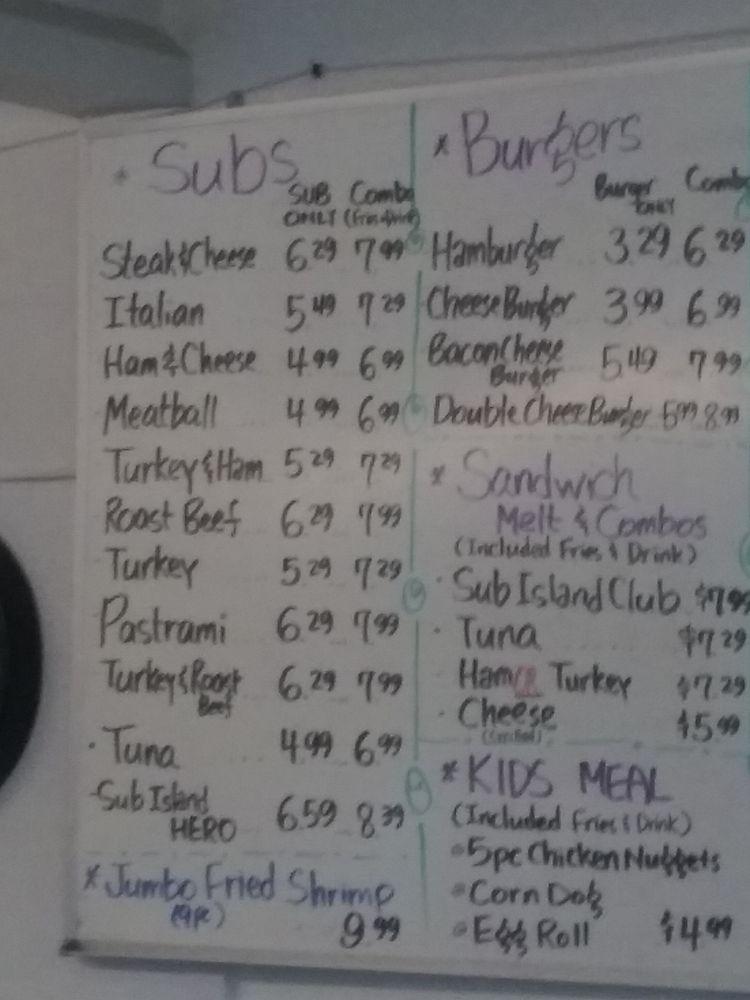 * Subs
SUB ONLY Combo (Fries & Drink)
Steak & Cheese 6.29 7.99
Italian 5.49 7.29
Ham & Cheese 4.99 6.99
Meatball 4.99 6.99
Turkey & Ham 5.29 7.29
Roast Beef 6.29 7.99
Turkey 5.29 7.29
Pastrami 6.29 7.99
Turkey & Roast Beef 6.29 7.99
· Tuna 4.99 6.99
Sub Island HERO 6.59 8.39
* Jumbo Fried Shrimp
(9pc)
9.99
* Burgers
Burger ONLY Combo
Hamburger 3.29 6.29
Cheese Burger 3.99 6.99
Bacon Cheese Burger 5.49 7.99
Double Cheese Burger 5.99 8.99
* Sandwich
Melt & Combos
(Included Fries & Drink)
· Sub Island Club $7.99
· Tuna $7.29
Ham Turkey $7.29
· Cheese $5.99
* KIDS MEAL
(Included Fries & Drink)
• 5pc Chicken Nuggets
• Corn Dog
• Egg Roll $4.99